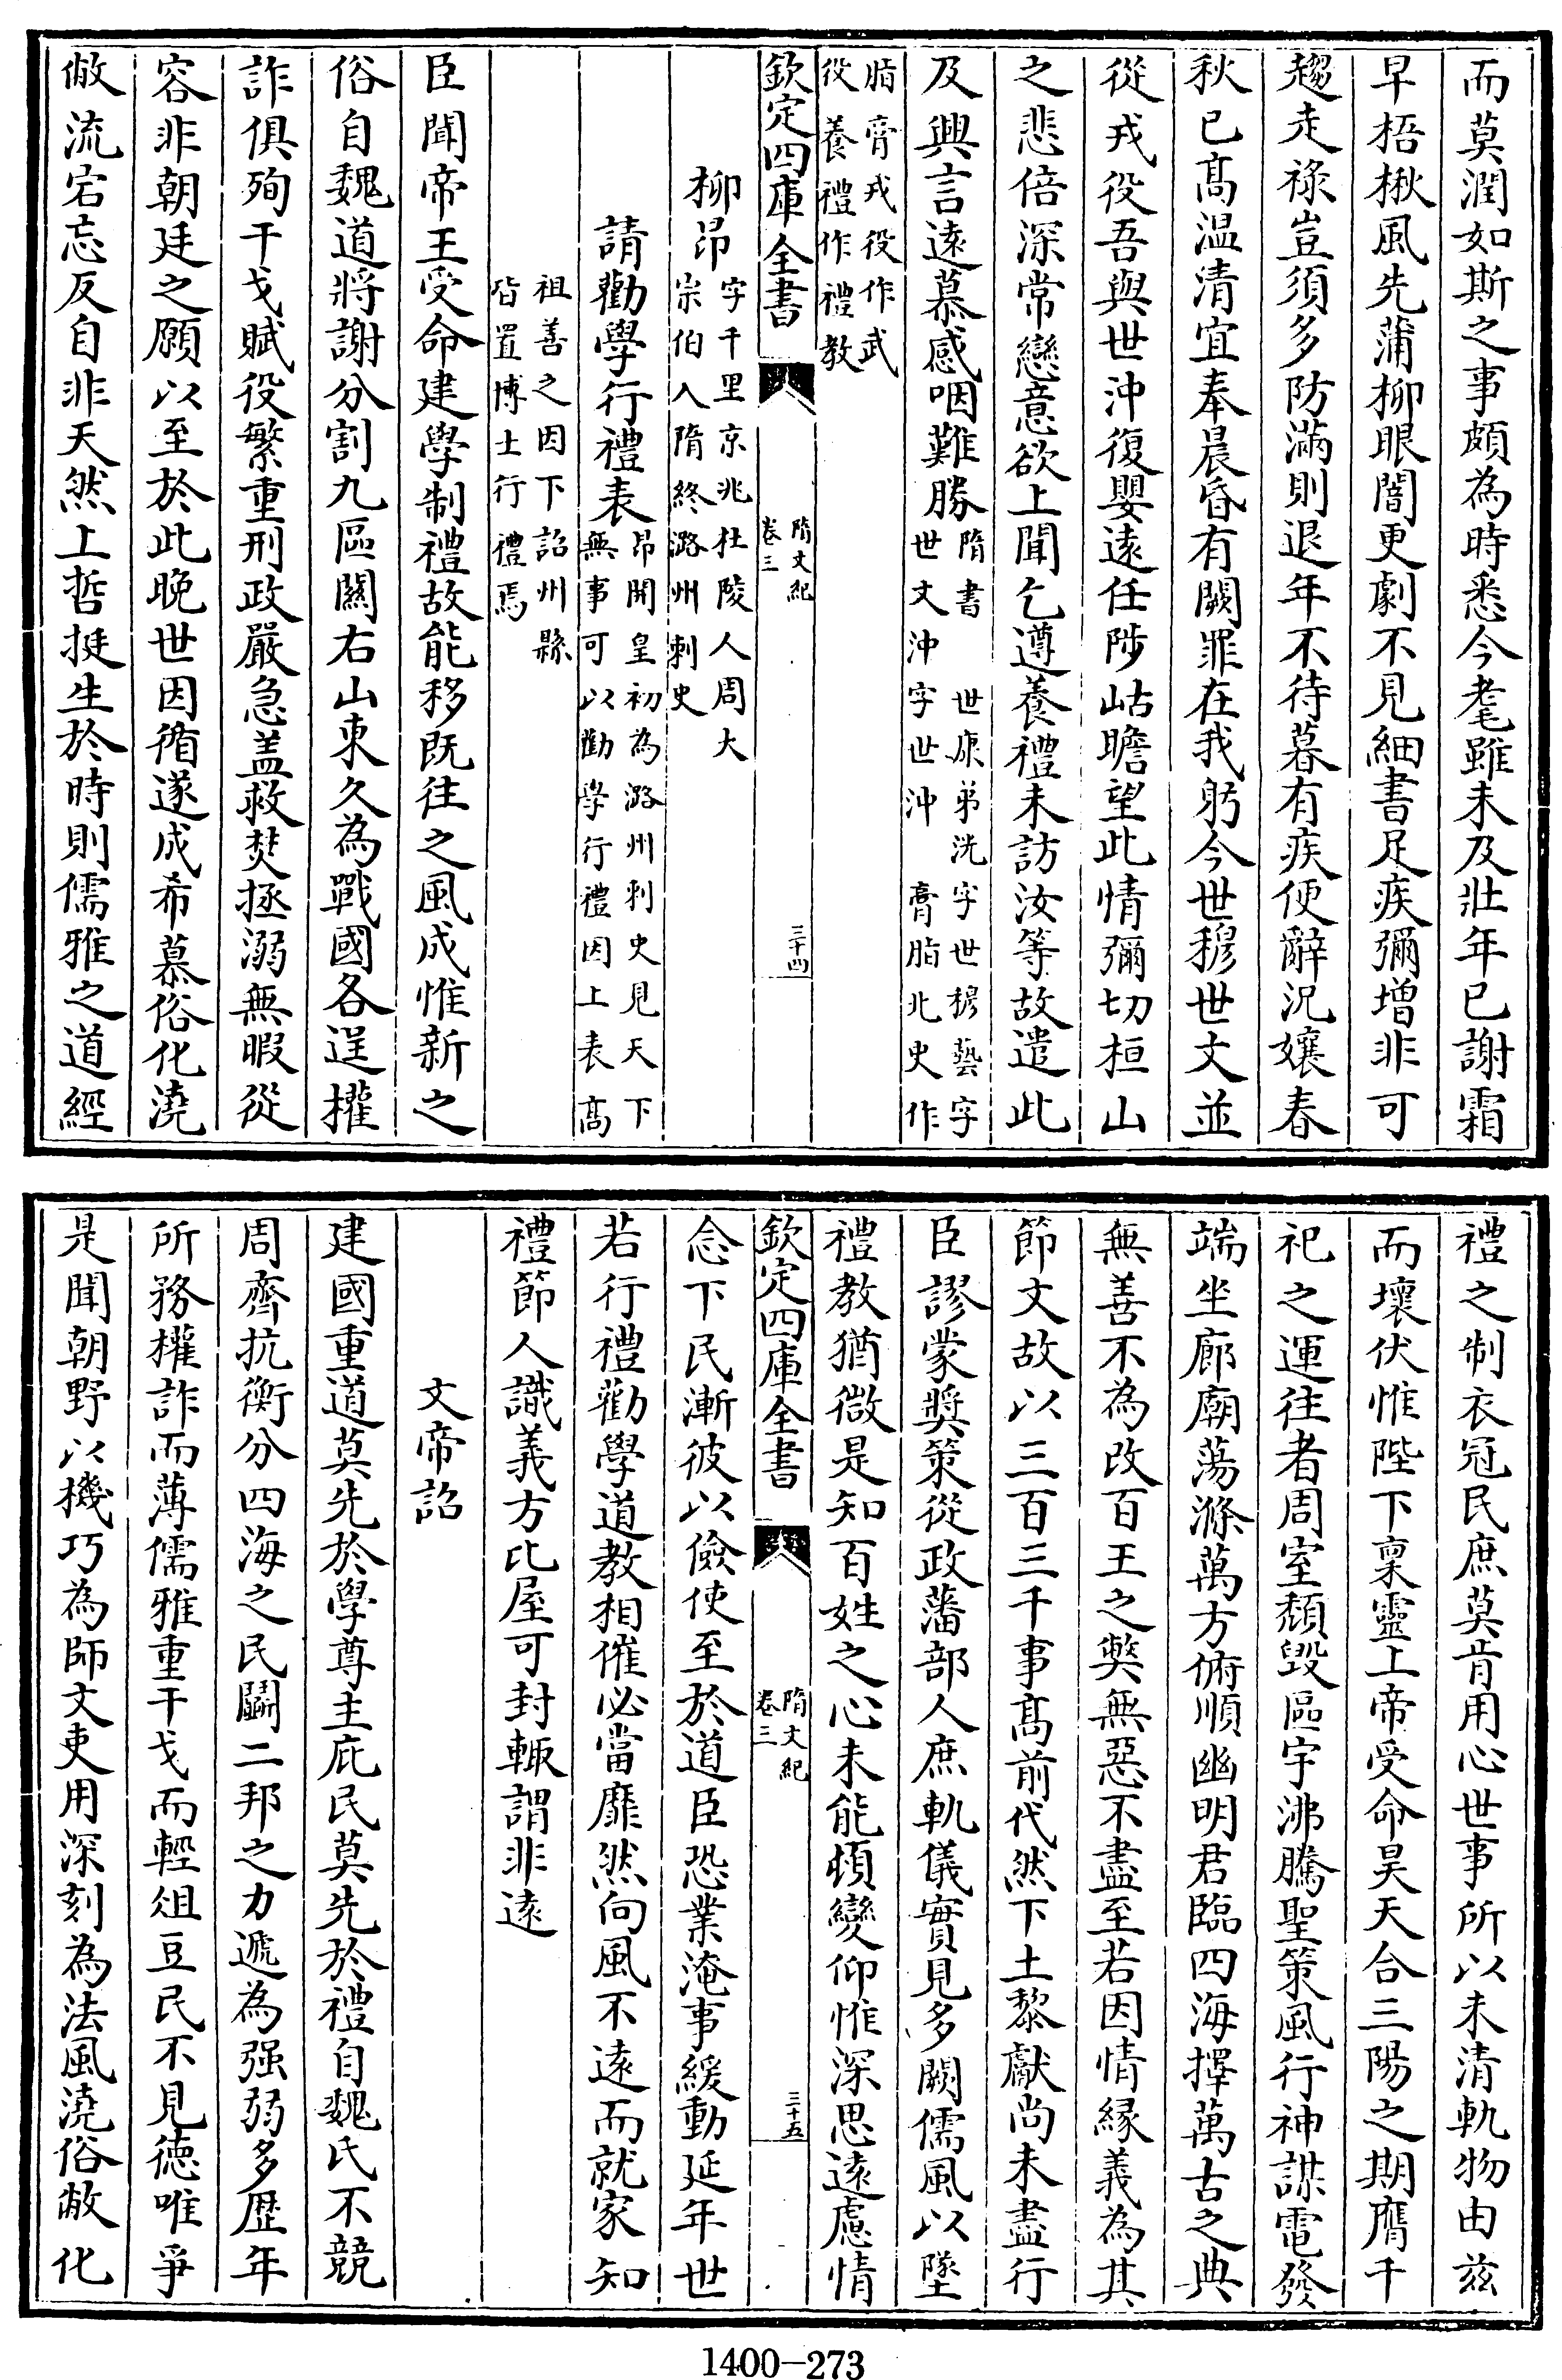 而莫潤如斯之事頗為時悉今耄雖未及壯年已謝霜
早梧楸風先蒲柳眼闇更劇不見細書足疾彌增非可
趨走祿豈須多防滿則退年不待暮有疾便辭況孃春
秋已髙温清宜奉晨昏有闕罪在我躬今世穆世文並
從戎役吾與世沖復嬰遠任陟岵瞻望此情彌切桓山
之悲倍深常戀意欲上聞乞遵養禮未訪汝等故遣此
及興言遠慕感咽難勝隋書 世康弟洸字世穆藝字
世文沖字世沖 膏脂北史作
脂膏戎役作武
役養禮作禮教
欽定四庫全書
隋文紀
卷三
三十四
柳昂字千里京兆杜陵人周大
宗伯入隋終潞州刺史
請勸學行禮表昂開皇初為潞州刺史見天下
無事可以勸學行禮因上表髙
祖善之因下詔州縣
皆置博士行禮焉
臣聞帝王受命建學制禮故能移既往之風成惟新之
俗自魏道將謝分割九區關右山東久為戰國各逞權
詐俱殉干戈賦役繁重刑政嚴急盖救焚拯溺無暇從
容非朝廷之願以至於此晚世因循遂成希慕俗化澆
敝流宕忘反自非天然上哲挺生於時則儒雅之道經
禮之制衣冠民庶莫肯用心世事所以未清軌物由兹
而壞伏惟陛下禀靈上帝受命昊天合三陽之期膺千
祀之運往者周室頹毀區宇沸騰聖策風行神謀電發
端坐廊廟蕩滌萬方俯順幽明君臨四海擇萬古之典
無善不為改百王之弊無惡不盡至若因情緣義為其
節文故以三百三千事髙前代然下土黎獻尚未盡行
臣謬蒙獎策從政藩部人庶軌儀實見多闕儒風以墜
禮教猶微是知百姓之心未能頓變仰惟深思遠慮情
欽定四庫全書
隋文紀
卷三
三十五
念下民漸彼以儉使至於道臣恐業淹事緩動延年世
若行禮勸學道教相催必當靡然向風不遠而就家知
禮節人識義方比屋可封輙謂非遠
文帝詔
建國重道莫先於學尊主庇民莫先於禮自魏氏不競
周齊抗衡分四海之民鬭二邦之力遞為强弱多歴年
所務權詐而薄儒雅重干戈而輕俎豆民不見徳唯爭
是聞朝野以機巧為師文吏用深刻為法風澆俗敝化
1400-273